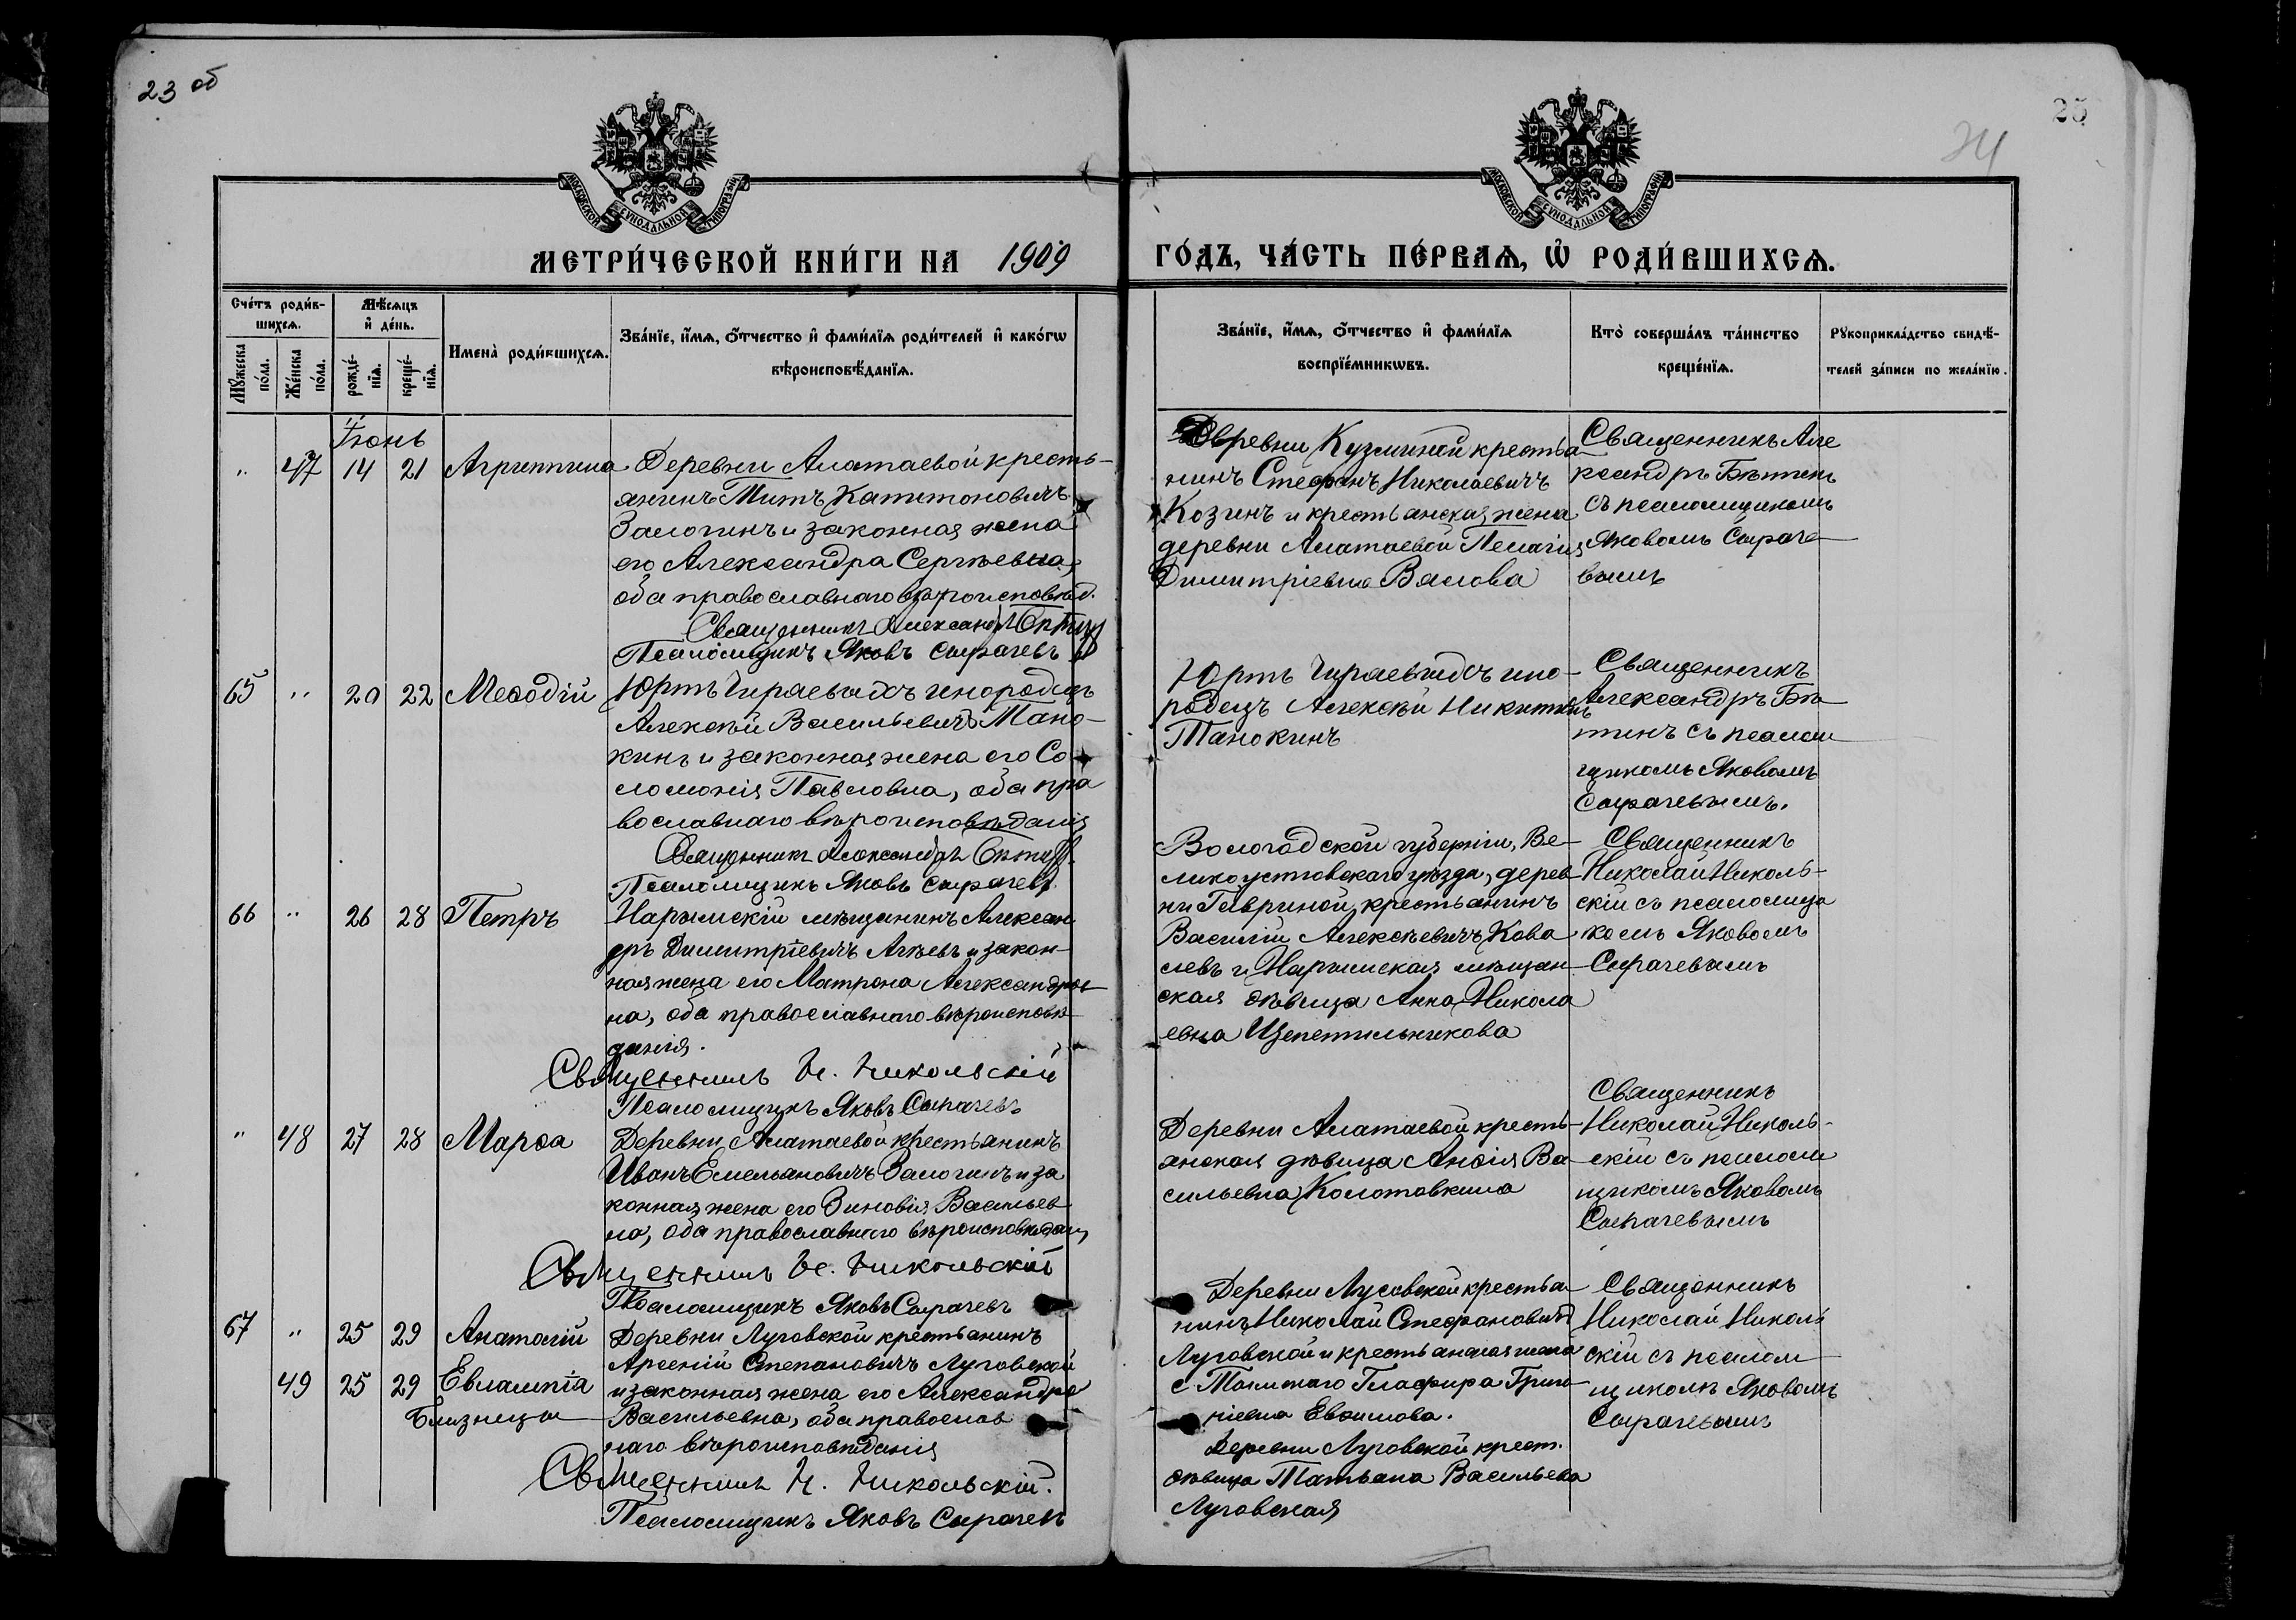 23 об
25
24
МОСКОВСКОЙ СѴНОДАЛЬНОЙ ТИПОГРАФІИ
МОСКОВСКОЙ СѴНОДАЛЬНОЙ ТИПОГРАФІИ
МЕТРИ́ЧЕСКОЙ КНИ́ГИ НА 1909
ГО́ДЪ, ЧА́СТЬ ПЕ́РВАѦ, Ѽ РОДИ́ВШИХСѦ.
Сче́тъ роди́в-
шихсѧ.
Мꙋ́жеска
по́ла.
Же́нска
по́ла.
Мѣ́сѧцъ
и҆ де́нь.
рожде́-
нїѧ.
креще́-
нїѧ.
Имена̀ роди́вшихсѧ.
Зва́нїе, и҆́мѧ, ѻ҆́тчество и҆ фами́лїѧ роди́телей и҆ како́гѡ
вѣроисповѣ́данїѧ.
Зва́нїе, и҆́мѧ, ѻ҆́тчество и҆ фами́лїѧ
воспрїе́мникѡвъ.
Кто̀ соверша́лъ та́инство
креще́нїѧ.
Рꙋкоприкла́дство свидѣ́-
телей за́писи по жела́нїю.
Іюнь
" 47 14 21 Агриппина Деревни Алатаевой кресть-
янинъ Титъ Капитоновичъ
Залогинъ и законная жена
его Александра Сергѣевна,
оба православнаго вѣроисповѣд.
Священникъ Александръ Бѣтинъ
Псаломщикъ Яковъ Сырачевъ
Деревни Кузминой крестья-
нинъ Стефанъ Николаевичъ
Козинъ и крестьянская жена
деревни Алатаевой Пелагія
Димитріевна Вялова
Священникъ Але
ксандръ Бѣтинъ
съ псаломщикомъ
Яковомъ Сыраче-
вымъ
65 " 20 22 Меѳодій Юртъ Чураевыхъ инородецъ
Алексѣй Васильевичъ Тано-
кинъ и законная жена его Со-
ломонія Павловна, оба пра
вославнаго вѣроисповѣданія
Священникъ Александръ Бѣтинъ
Псаломщикъ Яковъ Сырачевъ
Юртъ Чураевыхъ ино-
родецъ Алексѣй Никитинъ
Танокинъ
Священникъ
Александръ Бѣ-
тинъ съ псалом-
щикомъ Яковомъ
Сырачевымъ.
66 " 26 28 Петръ Нарымскій мѣщанинъ Алексан
дръ Димитріевичъ Агѣевъ и закон-
ная жена его Матрона Александров-
на, оба православнаго вѣроисповѣ-
данія.
Священникъ Н. Никольскій
Псаломщикъ Яковъ Сырачевъ
Вологодской губерніи, Ве-
ликоустюгскаго уѣзда, дерев-
ни Гавриной, крестьянинъ
Василій Алексѣевичъ Кова
левъ и Нарымская мѣщан-
ская дѣвица Анна Никола
евна Щепетильникова
Священникъ
Николай Николь-
скій съ псаломщи
комъ Яковомъ
Сырачевымъ
" 48 27 28 Марѳа Деревни Алатаевой крестьянинъ
Иванъ Емельяновичъ Залогинъ и за
конная жена его Зиновія Васильев-
на, оба православнаго вѣроисповѣдан,
Священникъ Н. Никольскій
Псаломщикъ Яковъ Сырачевъ
Деревни Алатаевой кресть-
янская дѣвица Анѳія Ва-
сильевна Колотовкина
Священникъ
Николай Николь-
скій съ псалом
щикомъ Яковомъ
Сырачевымъ
67 " 25 29 Анатолій Деревни Луговской крестьянинъ
Арсеній Степановичъ Луговской
49 25 29 Евлампія и законная жена его Александра
Близнецы Васильевна, оба православ
наго вѣроисповѣданія
Священникъ Н. Никольскій.
Псаломщикъ Яковъ Сырачевъ
Деревни Луговской крестья-
нинъ Николай Стефановичъ
Луговской и крестьянская жена
с. Тымскаго Глафира Григо-
ріевна Евѳимова.
Деревни Луговской крест.
дѣвица Татьяна Васильева
Луговская
Священникъ
Николай Николь
скій съ псалом-
щикомъ Яковомъ
Сырачевымъ